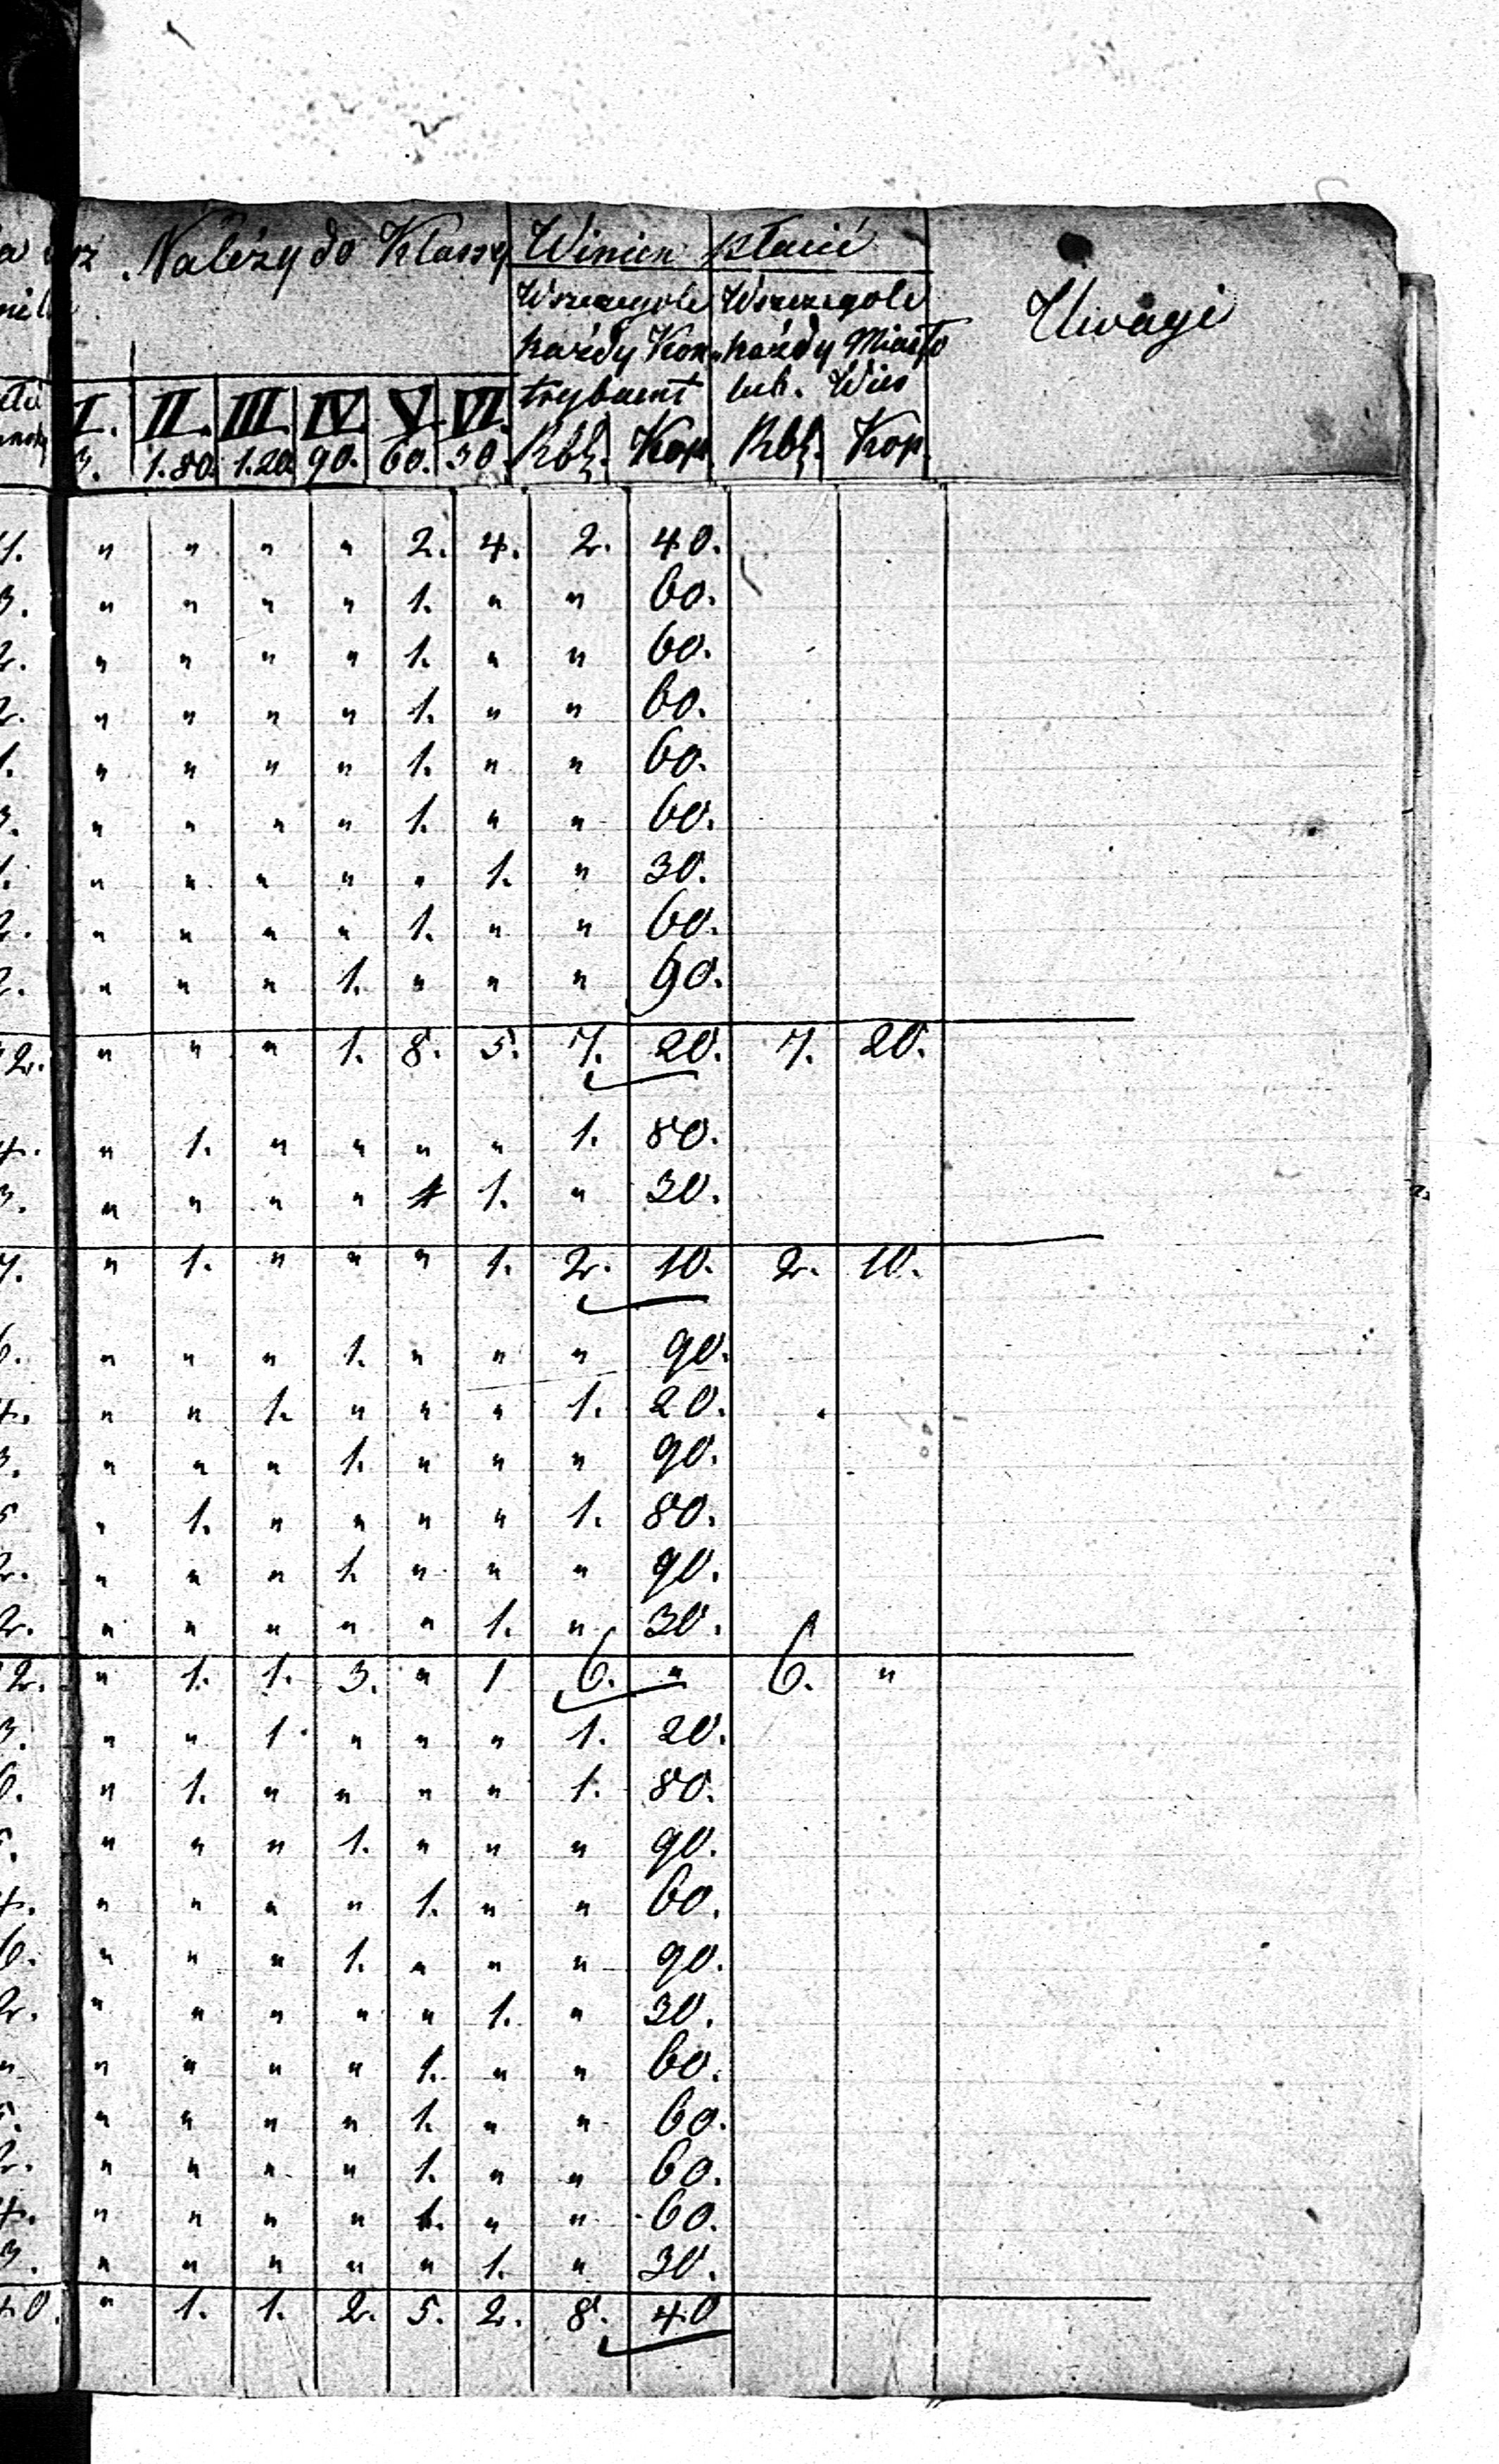 Należy do Klassy Winien płacić
Uwagi
Wszczegole Wszczegole
każdy Kon- każdy Miasto
trybuent lub. Wieś
I. II. III. IV. V. VI. Rbl. Kop. Rbl. Kop.
3. 1.80. 1.20. 90. 60. 30.
" " " " 2. 4. 2. 40.
3. " " " " 1. " " 60.
2. " " " " 1. " " 60.
2. " " " " 1. " " 60.
1. " " " " 1. " " 60.
3. " " " " 1. " " 60.
1. " " " " " 1. " 30.
2. " " " " 1. " " 60.
2. " " " 1. " " " 90.
2. " " " 1. 8. 5. 7. 20. 7. 20.
4. " 1. " " " " 1. 80.
3. " " " " 1. " 30.
7. " 1. " " " 1. 2. 10. 2. 10.
6. " " " 1. " " " 90.
4. " " 1. " " " 1. 20.
3. " " " 1. " " " 90.
5 " 1. " " " " 1. 80.
2. " " " 1. " " " 90.
2. " " " " " 1. " 30.
2. " 1. 1. 3. " 1 6. " 6. "
3. " " 1. " " " 1. 20.
6. " 1. " " " " 1. 80.
5. " " " 1. " " " 90.
4. " " " " 1. " " 60.
6. " " " 1. " " " 90.
2. " " " " " 1. " 30.
" " " " " 1. " " 60.
5. " " " " 1. " " 60.
2. " " " " 1. " " 60.
4. " " " " 1. " " 60.
3. " " " " " 1. " 30.
40. " 1. 1. 2. 5. 2. 8. 40